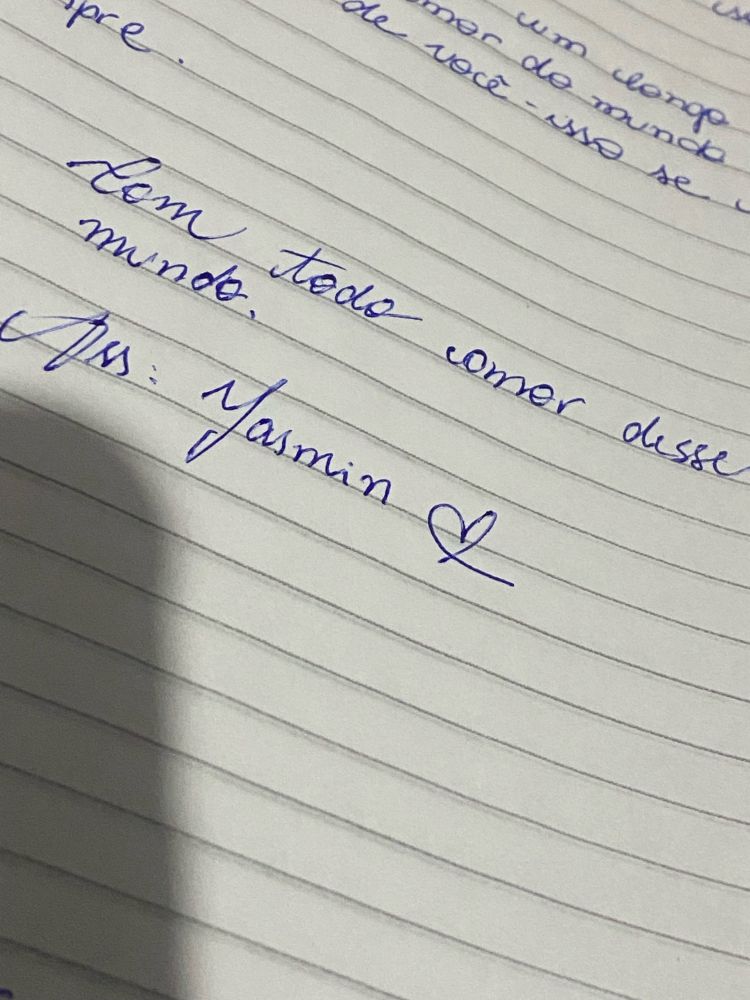 um longo
mor do mundo
de você - isso se
pre.
Com todo amor desse
mundo.
Ass: Yasmin ♡